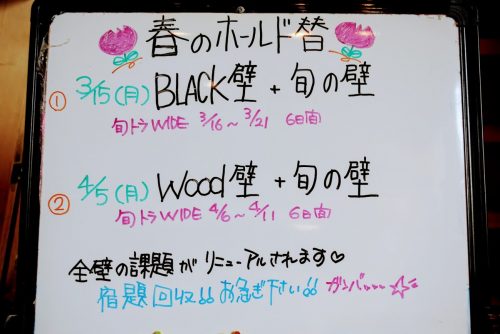 春のホールド替
① 3/15(月) BLACK壁 + 旬の壁
旬トラWIDE 3/16~3/21 6日間
② 4/5(月) Wood壁 + 旬の壁
旬トラWIDE 4/6~4/11 6日間
全壁の課題がリニューアルされます♡
宿題回収!!お急ぎ下さい!! ガンバ〜〜☆ミ